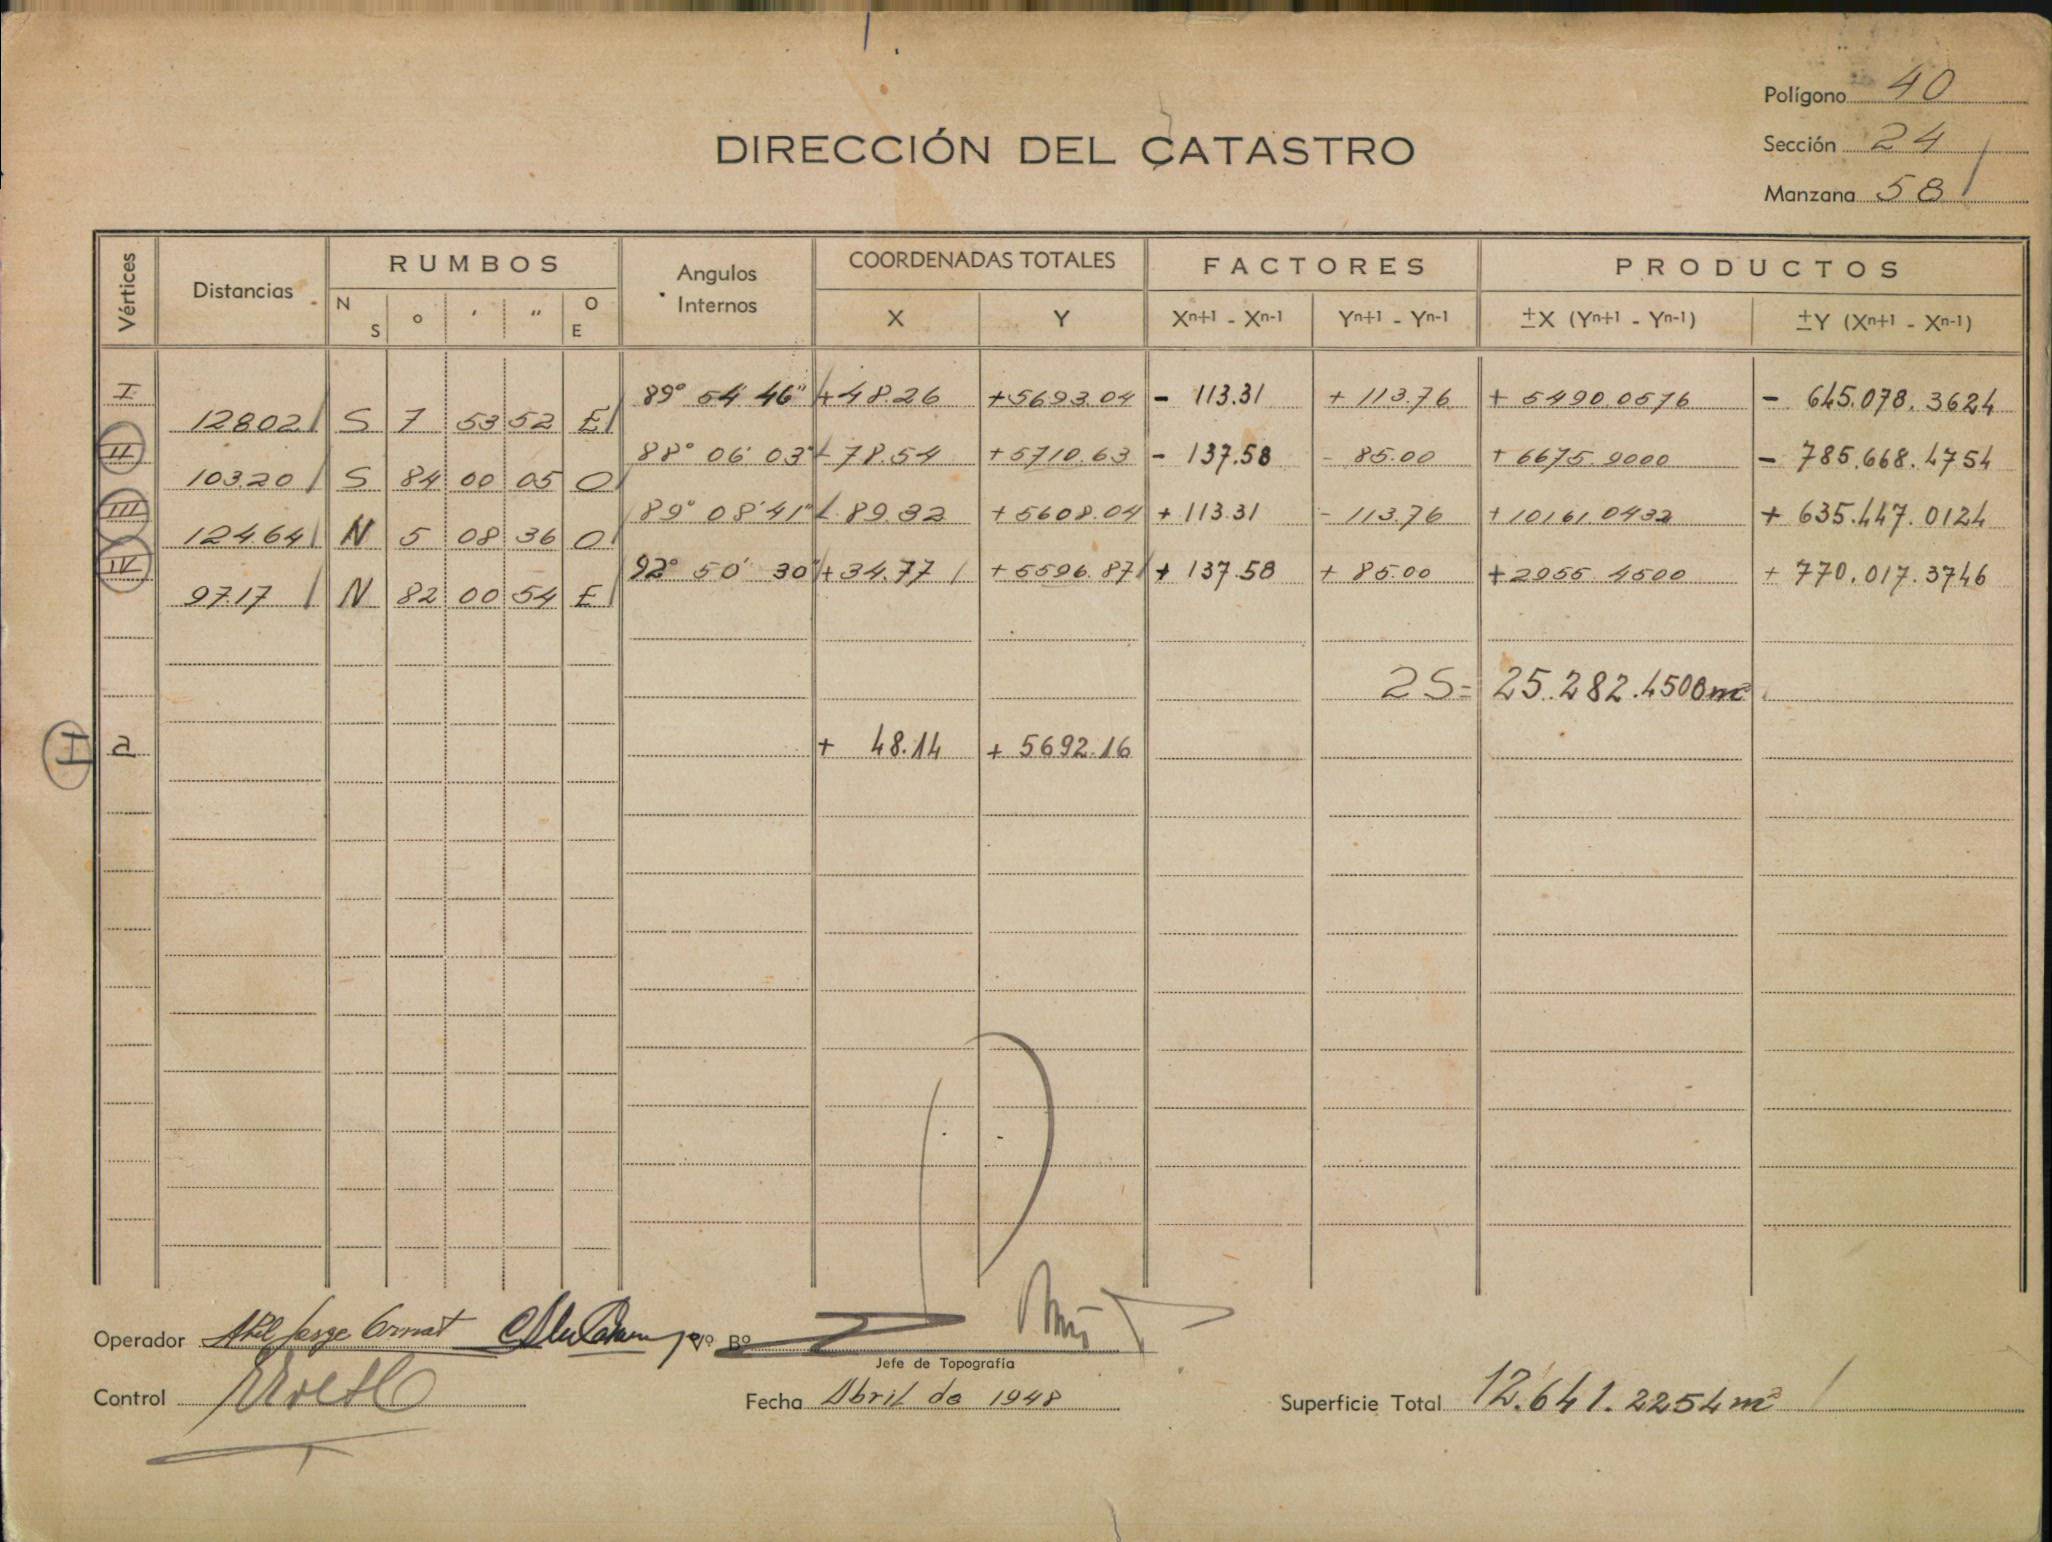 Polígono 40
DIRECCIÓN DEL CATASTRO
Sección 24
Manzana 58
Vértices Distancias RUMBOS Angulos Internos COORDENADAS TOTALES FACTORES PRODUCTOS
N S ° ' " O E X Y Xn+1 - Xn-1 Yn+1 - Yn-1 ±X (Yn+1 - Yn-1) ±Y (Xn+1 - Xn-1)
I 89° 54' 46" +48.26 +5693.04 - 113.31 + 113.76 + 5490.0576 - 645.078.3624
128.02 S 7 53 52 E
II 88° 06' 03" - 78.54 +5710.63 - 137.58 - 85.00 + 6675.9000 - 785.668.4754
103.20 S 84 00 05 O
III 89° 08' 41" - 89.32 +5608.04 + 113.31 - 113.76 + 10161.0432 + 635.447.0124
124.64 N 5 08 36 O
IV 92° 50' 30" +34.77 +5596.87 + 137.58 + 85.00 +2955.4500 + 770.017.3746
97.17 N 82 00 54 E
2S= 25.282.4508m²
I a + 48.14 + 5692.16
Operador Vº Bº
Jefe de Topografía
Control Fecha Abril de 1948 Superficie Total 12.641.2254m²